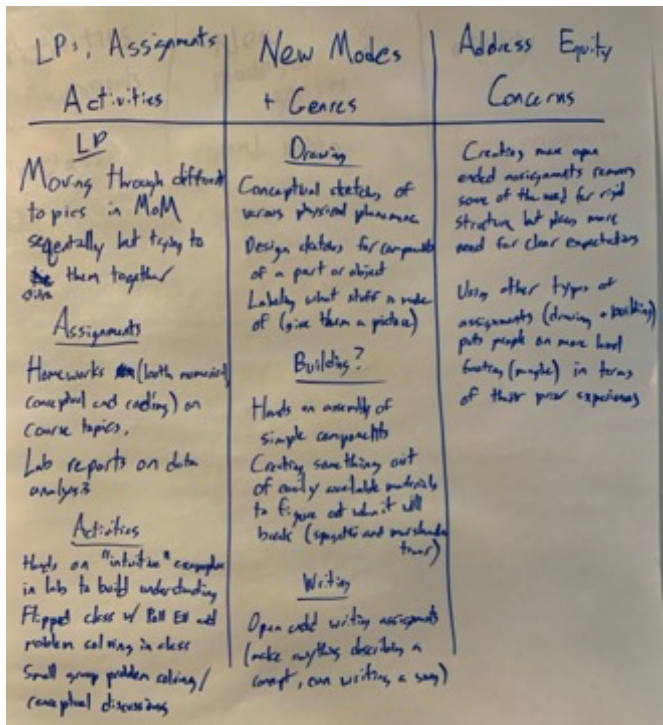 LPs, Assignments
Activities
LP
Moving through different
topics in MoM
seqentially but trying to
them together
Assignments
Homeworks (both numerical,
conceptual and coding) on
course topics.
Lab reports on data
analysis
Activities
Hands on "intuitive" examples
in labs to build understanding
Flipped class w/ Poll EV and
problem solving in class
Small group problem solving/
conceptual discussions
New Modes
+ Genres
Drawing
Conceptual sketches of
various physical phenomena
Design sketches for components
of a part or object
Labeling what stuff is made
of (give them a picture)
Building?
Hands on assembly of
simple components
Creating something out
of easily available materials
to figure out when it will
break (spagetti and marshmallow
truss)
Writing
Open ended writing assignments
(make anything describing a
concept, even writing a song)
Address Equity
Concerns
Creating more open
ended assignments removes
some of the need for rigid
structure but places more
need for clear expectations
Using other types of
assignments (drawing + building)
puts people on more level
footing (maybe) in terms
of their prior experiences